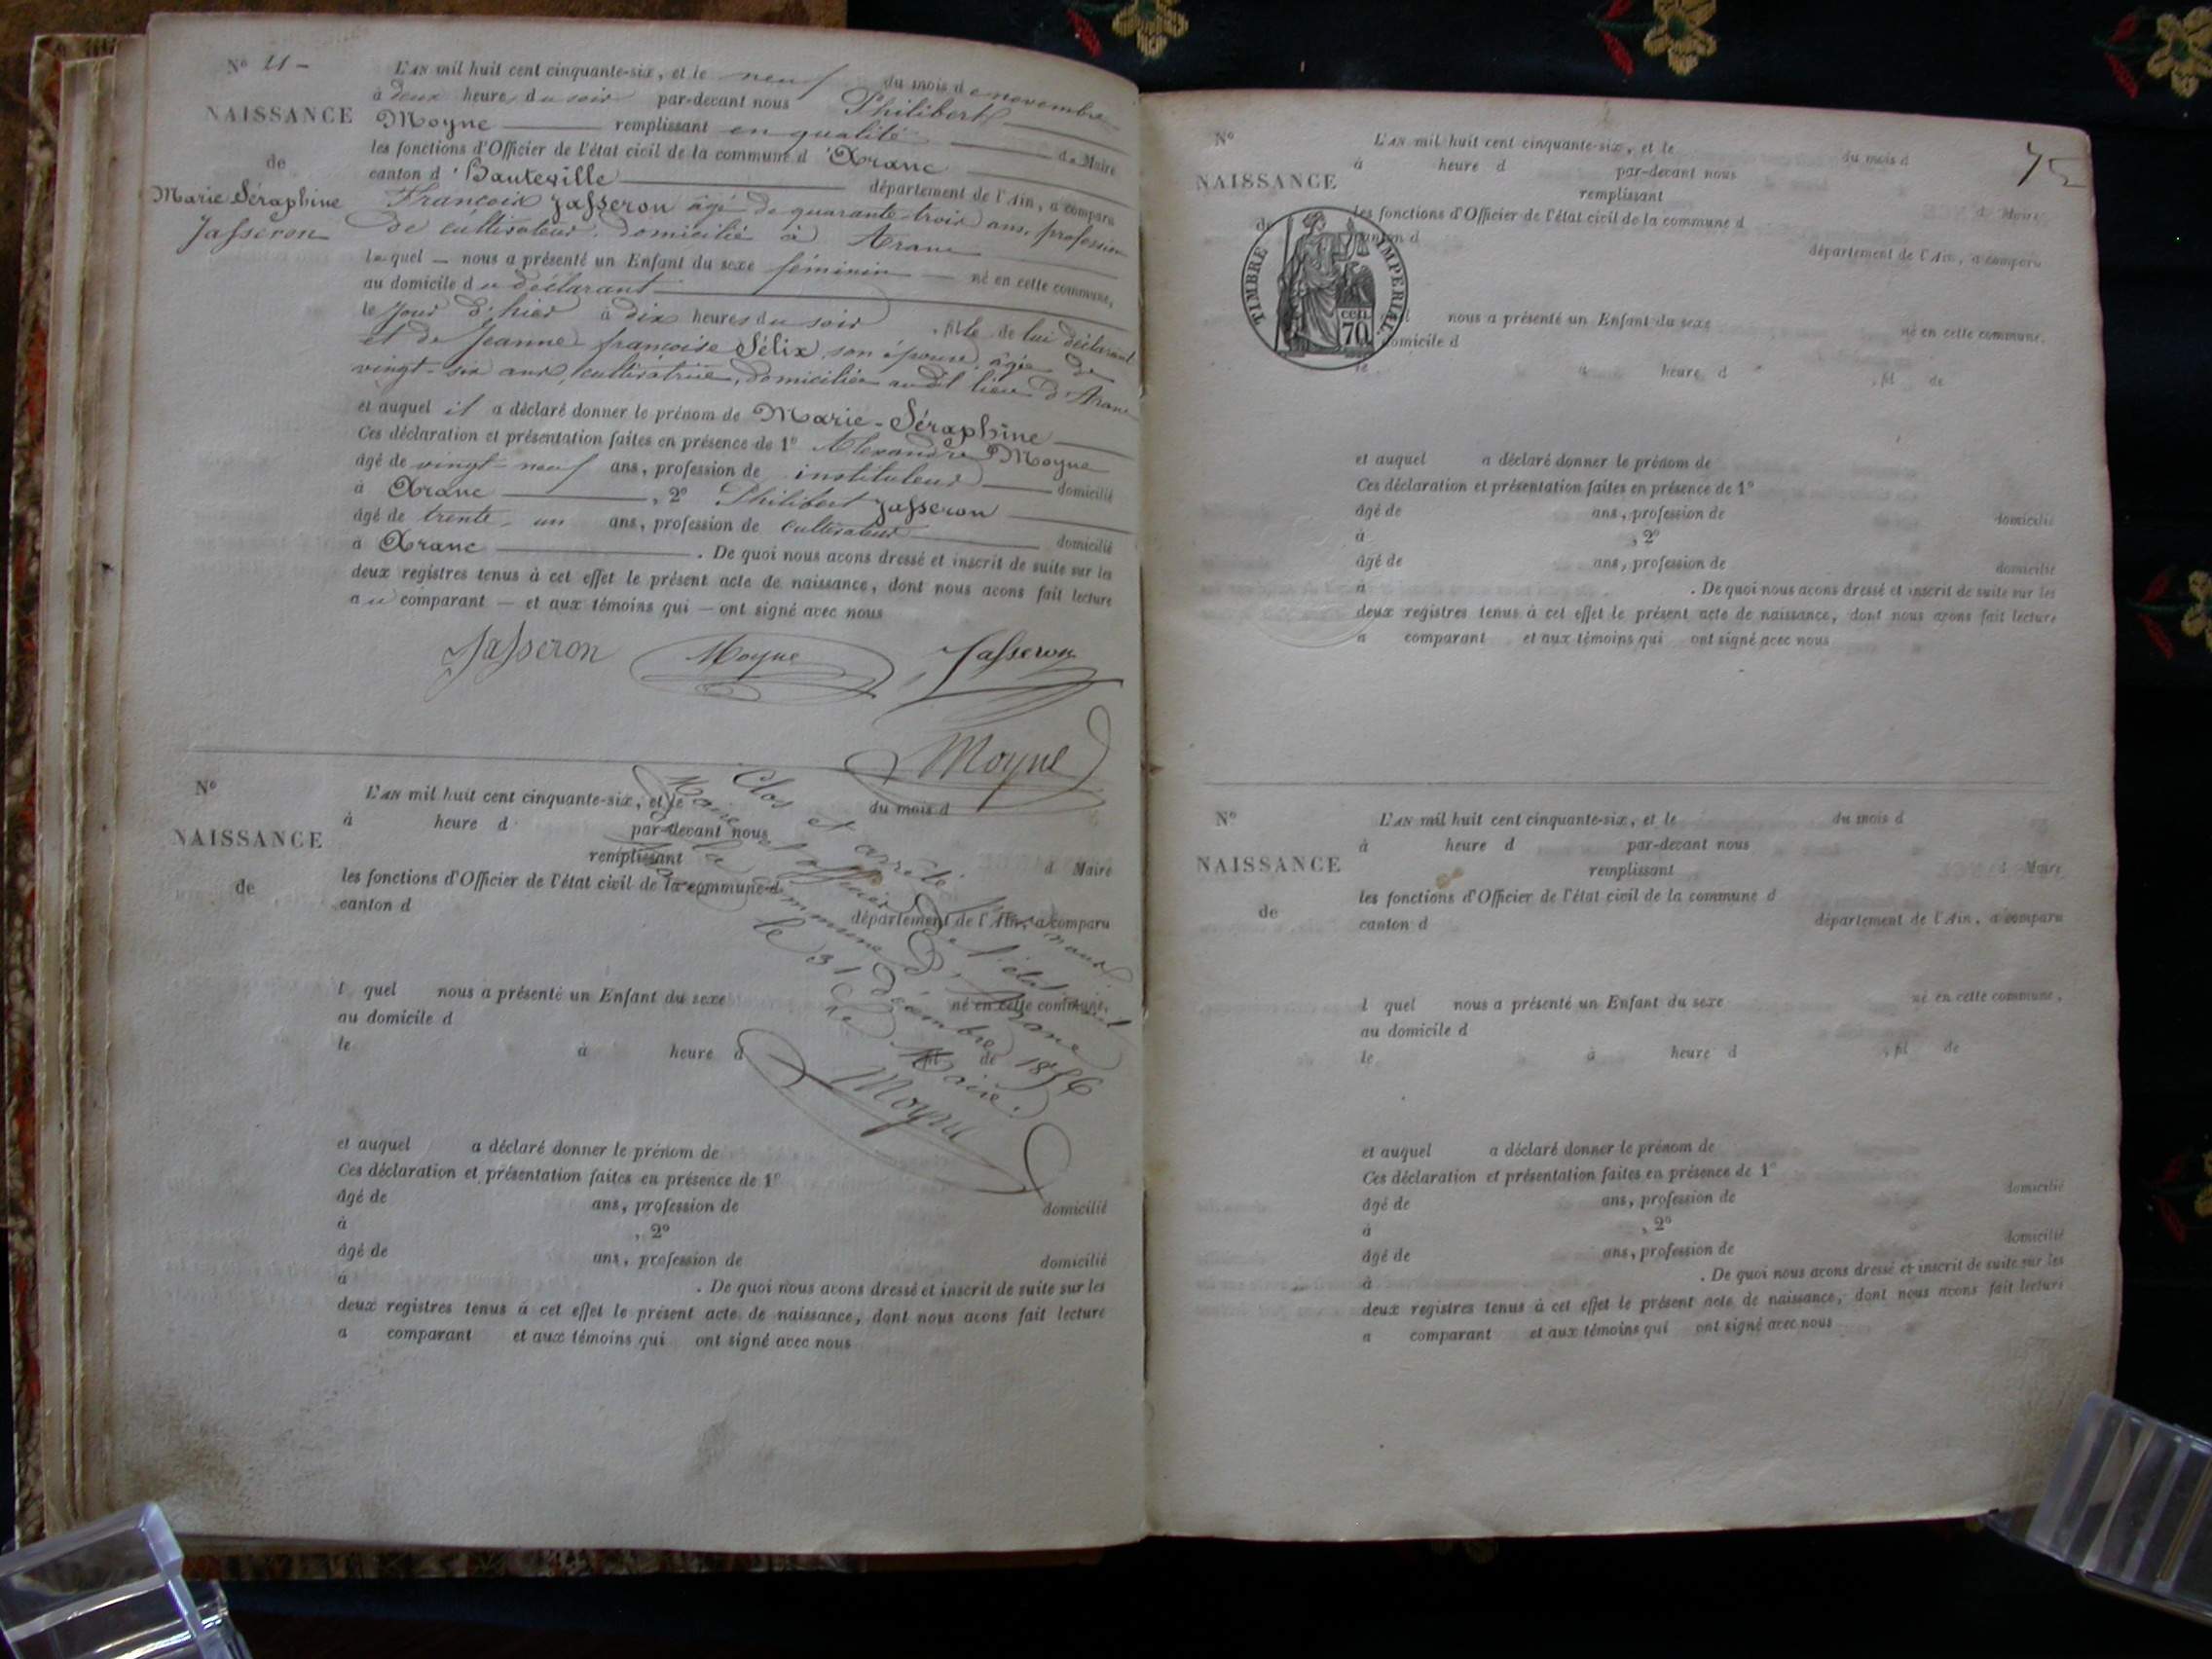 N° 21 -
NAISSANCE
de
Marie Séraphine
Jasseron
L'AN mil huit cent cinquante-six, et le neuf du mois de novembre
à deux heures du soir par-devant nous Philibert
Moyne remplissant en qualité de Maire
les fonctions d'Officier de l'état civil de la commune d'Aranc
canton d'Hauteville département de l'Ain, a comparu
François Jasseron âgé de quarante-trois ans, profession
de cultivateur, domicilié à Aranc
lequel — nous a présenté un Enfant du sexe féminin — né en cette commune,
au domicile du déclarant
le jour d'hier à dix heures du soir, fille de lui déclarant
et de Jeanne françoise Sélix, son épouse, âgée de
vingt-six ans, cultivatrice, domiciliée audit lieu d'Aranc
et auquel il a déclaré donner le prénom de Marie-Séraphine
Ces déclaration et présentation faites en présence de 1° Alexandre Moyne
âgé de vingt-neuf ans, profession de instituteur domicilié
à Aranc, 2° Philibert Jasseron
âgé de trente-un ans, profession de cultivateur domicilié
à Aranc. De quoi nous avons dressé et inscrit de suite sur les
deux registres tenus à cet effet le présent acte de naissance, dont nous avons fait lecture
au comparant — et aux témoins qui — ont signé avec nous
Jasseron Moyne Jasseron
Moyne
N°
NAISSANCE
de
L'AN mil huit cent cinquante-six, et le du mois d
à heure d par-devant nous
remplissant d Maire
les fonctions d'Officier de l'état civil de la commune d
canton d département de l'Ain, a comparu
l quel nous a présenté un Enfant du sexe né en cette commune,
au domicile d
le à heure d , fil de
et auquel a déclaré donner le prénom de
Ces déclaration et présentation faites en présence de 1°
âgé de ans, profession de domicilié
à , 2°
âgé de ans, profession de domicilié
à . De quoi nous avons dressé et inscrit de suite sur les
deux registres tenus à cet effet le présent acte de naissance, dont nous avons fait lecture
a comparant et aux témoins qui ont signé avec nous
Clos et arrêté par nous
Maire et officier de l'état civil
de la commune d'Aranc
le 31 décembre 1856
Le Maire.
Moyne
75
N°
NAISSANCE
de
L'AN mil huit cent cinquante-six, et le du mois d
à heure d par-devant nous
remplissant d Maire
les fonctions d'Officier de l'état civil de la commune d
canton d département de l'Ain, a comparu
TIMBRE IMPERIAL.
cen.
70
nous a présenté un Enfant du sexe né en cette commune,
domicile d
le à heure d , fil de
et auquel a déclaré donner le prénom de
Ces déclaration et présentation faites en présence de 1°
âgé de ans, profession de domicilié
à , 2°
âgé de ans, profession de domicilié
à . De quoi nous avons dressé et inscrit de suite sur les
deux registres tenus à cet effet le présent acte de naissance, dont nous avons fait lecture
a comparant et aux témoins qui ont signé avec nous
N°
NAISSANCE
de
L'AN mil huit cent cinquante-six, et le du mois d
à heure d par-devant nous
remplissant d Maire
les fonctions d'Officier de l'état civil de la commune d
canton d département de l'Ain, a comparu
l quel nous a présenté un Enfant du sexe né en cette commune,
au domicile d
le à heure d , fil de
et auquel a déclaré donner le prénom de
Ces déclaration et présentation faites en présence de 1°
âgé de ans, profession de domicilié
à , 2°
âgé de ans, profession de domicilié
à . De quoi nous avons dressé et inscrit de suite sur les
deux registres tenus à cet effet le présent acte de naissance, dont nous avons fait lecture
a comparant et aux témoins qui ont signé avec nous